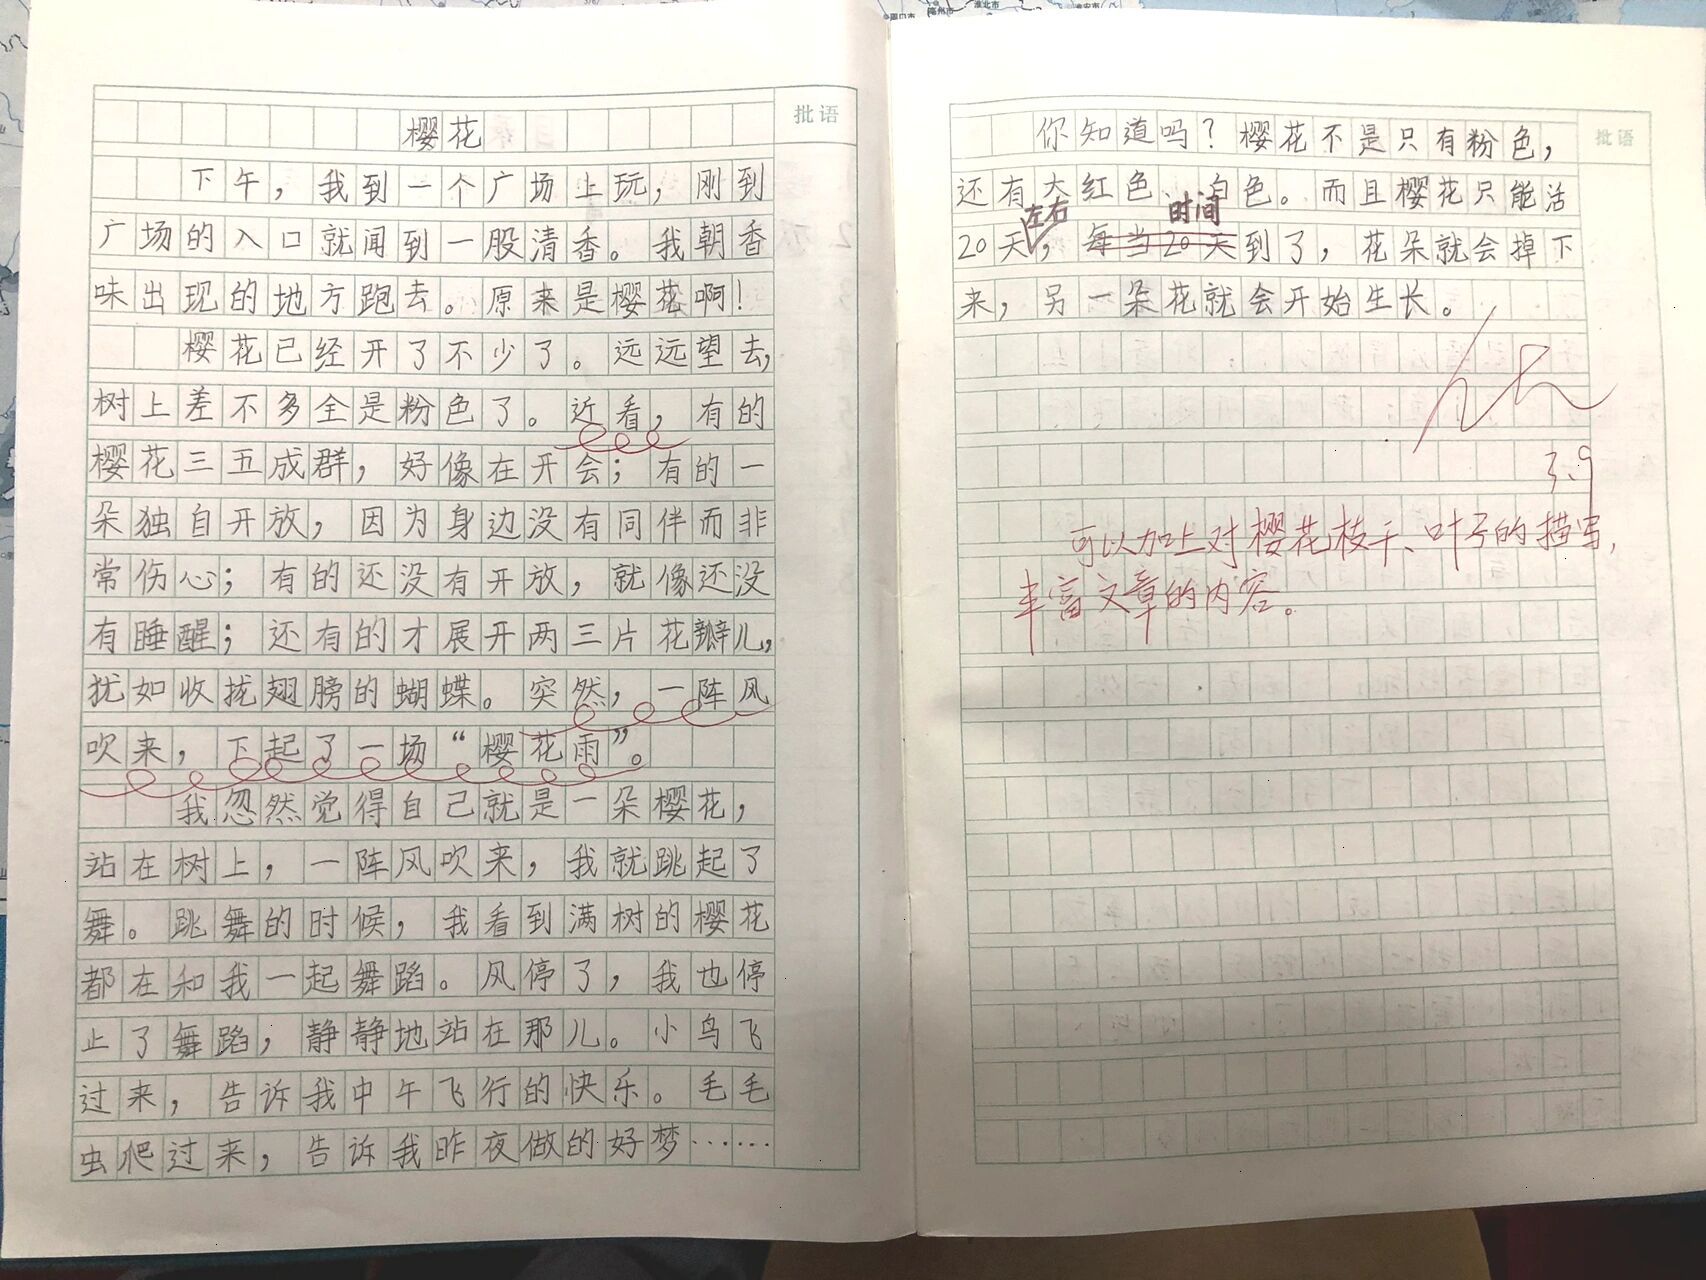 批语
樱花
下午，我到一个广场上玩，刚到
广场的入口就闻到一股清香。我朝香
味出现的地方跑去。原来是樱花啊！
樱花已经开了不少了。远远望去，
树上差不多全是粉色了。近看，有的
樱花三五成群，好像在开会；有的一
朵独自开放，因为身边没有同伴而非
常伤心；有的还没有开放，就像还没
有睡醒；还有的才展开两三片花瓣儿，
犹如收拢翅膀的蝴蝶。突然，一阵风
吹来，下起了一场“樱花雨”。
我忽然觉得自己就是一朵樱花，
站在树上，一阵风吹来，我就跳起了
舞。跳舞的时候，我看到满树的樱花
都在和我一起舞蹈。风停了，我也停
止了舞蹈，静静地站在那儿。小鸟飞
过来，告诉我中午飞行的快乐。毛毛
虫爬过来，告诉我昨夜做的好梦……
批语
你知道吗？樱花不是只有粉色，
还有大红色、白色。而且樱花只能活
左右 时间
20天，每当20天到了，花朵就会掉下
来，另一朵花就会开始生长。
优
3.9
可以加上对樱花枝干、叶子的描写，
丰富文章的内容。